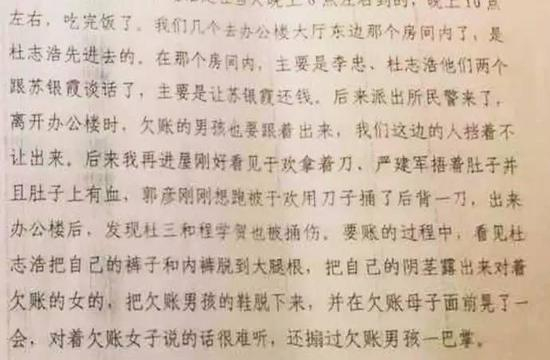 点左右到的，晚上10点
左右，吃完饭了。我们几个去办公楼大厅东边那个房间内了，是
杜志浩先进去的。在那个房间内，主要是李忠、杜志浩他们两个
跟苏银霞谈话了，主要是让苏银霞还钱。后来派出所民警来了，
离开办公楼时，欠账的男孩也要跟着出来，我们这边的人挡着不
让出来。后来我再进屋刚好看见于欢拿着刀、严建军捂着肚子并
且肚子上有血，郭彦刚刚想跑被于欢用刀子捅了后背一刀，出来
办公楼后，发现杜三和程学贺也被捅伤。要账的过程中，看见杜
志浩把自己的裤子和内裤脱到大腿根，把自己的阴茎露出来对着
欠账的女的，把欠账男孩的鞋脱下来，并在欠账母子面前晃了一
会，对着欠账女子说的话很难听，还搧过欠账男孩一巴掌。